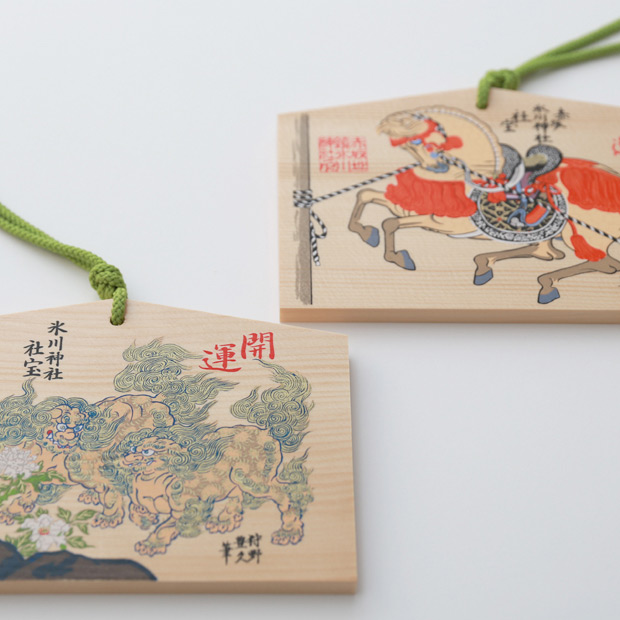 開運
氷川神社
社宝
狩野
豊久
筆
赤坂
氷川神社
社宝